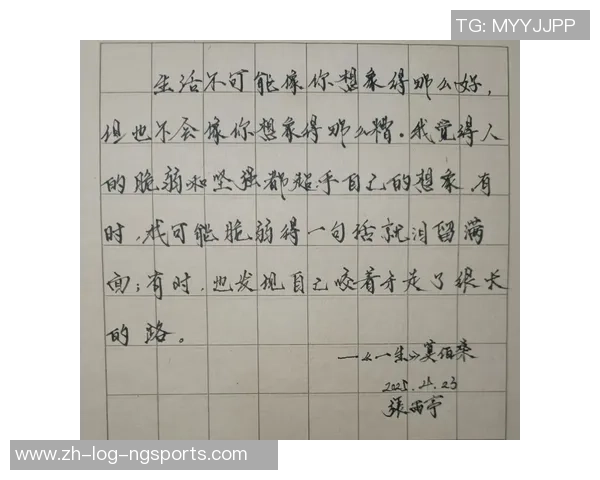 TG: MYYJJPP
生活不可能像你想象得那么好，
但也不会像你想象得那么糟。我觉得人
的脆弱和坚强都超乎自己的想象。有
时，我可能脆弱得一句话就泪留满
面；有时，也发现自己咬着牙走了很长
的路。
——《一生》莫伯桑
张雨亭
www.zh-log-ngsports.com